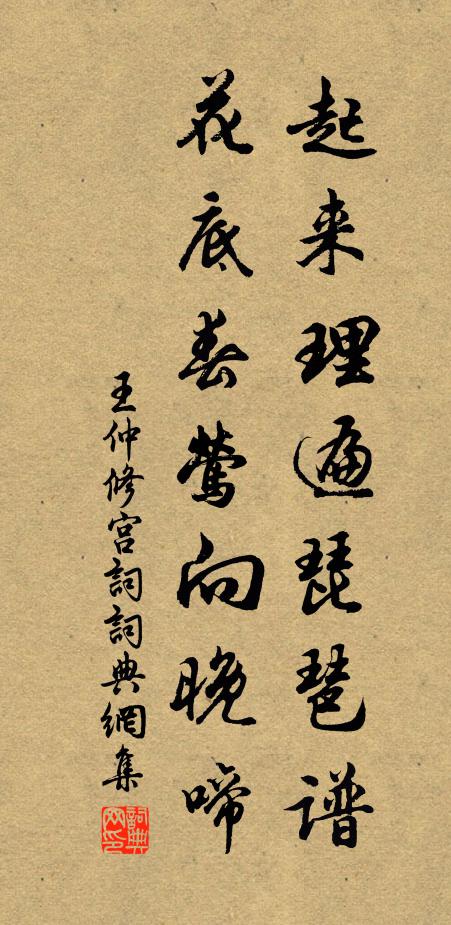 起来理遍琵琶谱
花底春莺向晚啼
王仲修宫詞詞典網集
詞典网印